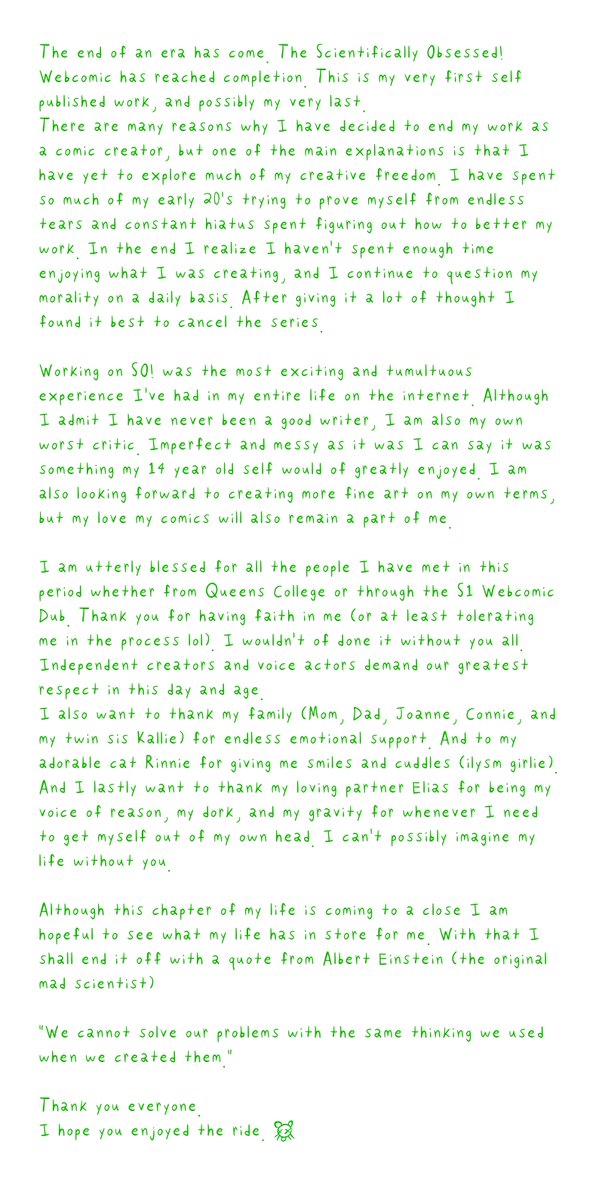 The end of an era has come. The Scientifically Obsessed!
Webcomic has reached completion. This is my very first self
published work, and possibly my very last.
There are many reasons why I have decided to end my work as
a comic creator, but one of the main explanations is that I
have yet to explore much of my creative freedom. I have spent
so much of my early 20's trying to prove myself from endless
tears and constant hiatus spent figuring out how to better my
work. In the end I realize I haven't spent enough time
enjoying what I was creating, and I continue to question my
morality on a daily basis. After giving it a lot of thought I
found it best to cancel the series.

Working on SO! was the most exciting and tumultuous
experience I've had in my entire life on the internet. Although
I admit I have never been a good writer, I am also my own
worst critic. Imperfect and messy as it was I can say it was
something my 14 year old self would of greatly enjoyed. I am
also looking forward to creating more fine art on my own terms,
but my love my comics will also remain a part of me.

I am utterly blessed for all the people I have met in this
period whether from Queens College or through the S1 Webcomic
Dub. Thank you for having faith in me (or at least tolerating
me in the process lol). I wouldn't of done it without you all.
Independent creators and voice actors demand our greatest
respect in this day and age.
I also want to thank my family (Mom, Dad, Joanne, Connie, and
my twin sis Kallie) for endless emotional support. And to my
adorable cat Rinnie for giving me smiles and cuddles (ilysm girlie).
And I lastly want to thank my loving partner Elias for being my
voice of reason, my dork, and my gravity for whenever I need
to get myself out of my own head. I can't possibly imagine my
life without you.

Although this chapter of my life is coming to a close I am
hopeful to see what my life has in store for me. With that I
shall end it off with a quote from Albert Einstein (the original
mad scientist)

"We cannot solve our problems with the same thinking we used
when we created them."

Thank you everyone.
I hope you enjoyed the ride.